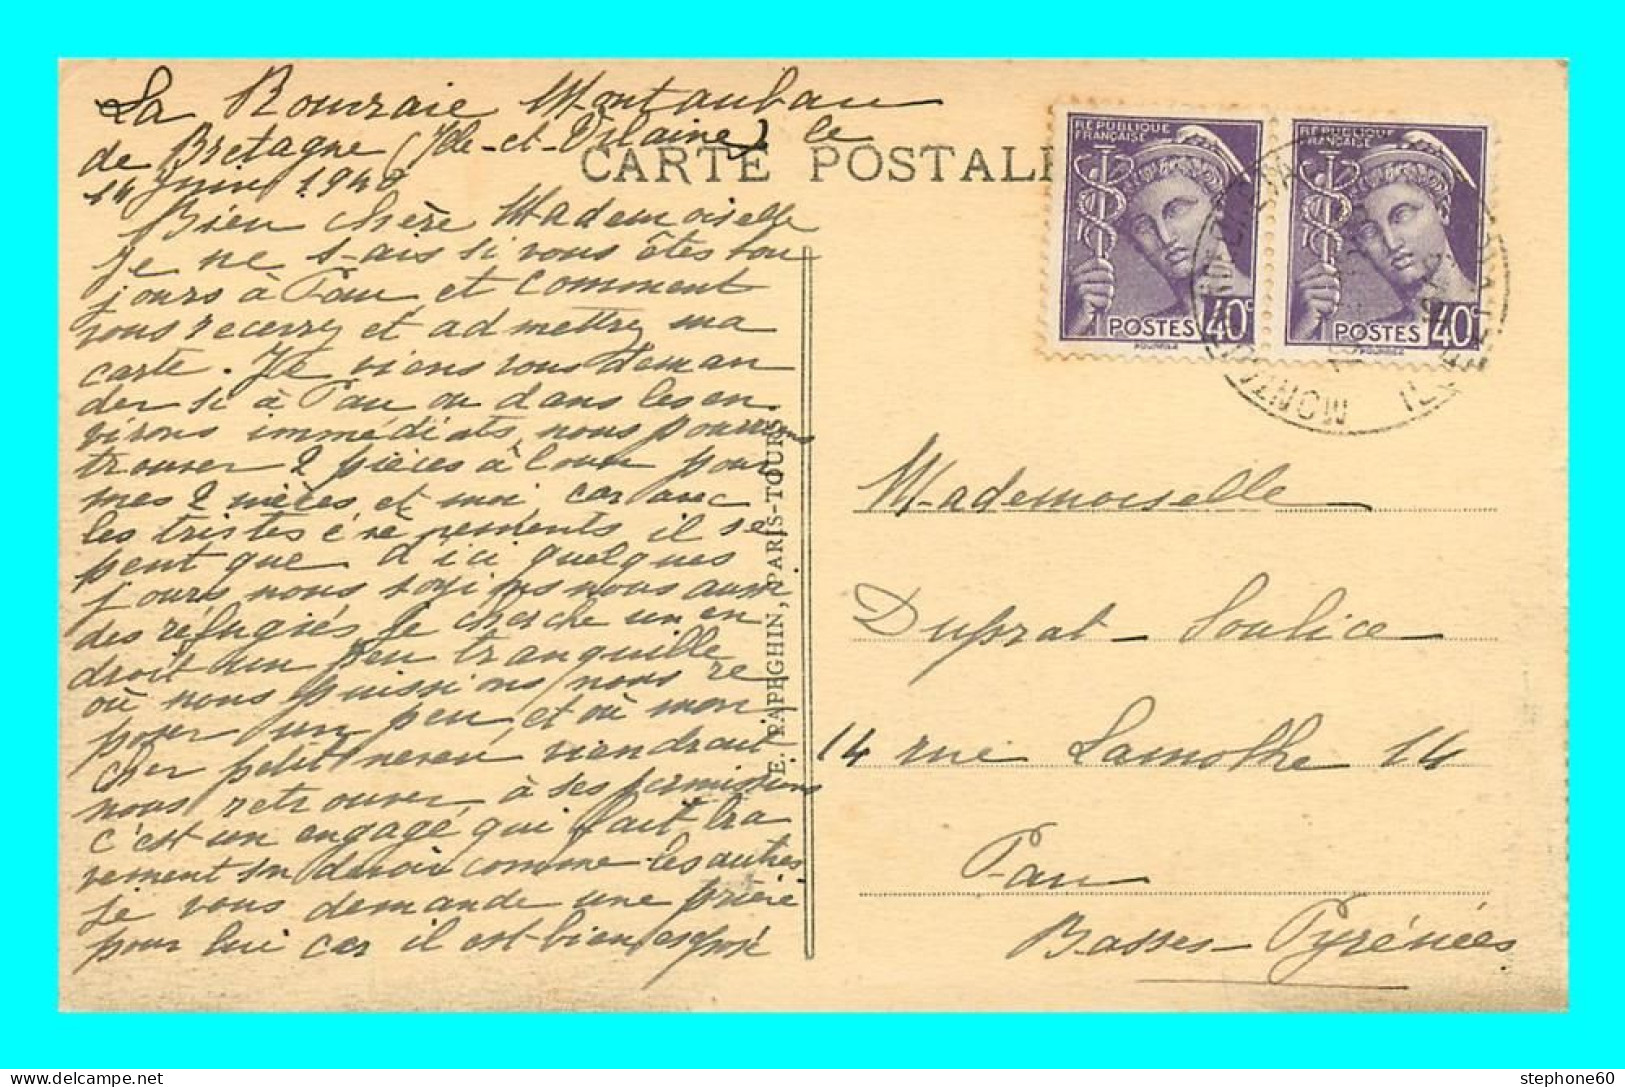 La Rouvraie Montauban
de Bretagne (Ille-et-Vilaine) le
14 Juin 1940
CARTE POSTALE
Bien chère Mademoiselle
Je ne sais si vous êtes tou
jours à Pau, et comment
vous recevrez et admettrez ma
carte. Je viens vous deman
der si à Pau ou dans les en
virons immédiats, nous pourrions
trouver 2 pièces à louer pour
mes 2 nièces, et moi car avec
les tristes évènements il se
peut que d'ici quelques
jours nous soyions nous aussi
des réfugiés, Je cherche un en
droit un peu tranquille
où nous puissions nous re
poser un peu, et où mon
cher petit neveu viendrait
nous retrouver, à ses permissions
c'est un engagé qui fait bra
vement son devoir comme les autres
je vous demande une prière
pour lui car il est bien exposé
E. PAPEGHIN, PARIS-TOURS
REPUBLIQUE
FRANÇAISE
POSTES 40c
REPUBLIQUE
FRANÇAISE
POSTES 40c
Mademoiselle
Duprat-Soulice
14 rue Lamothe 14
Pau
Basses-Pyrénées
stephone60